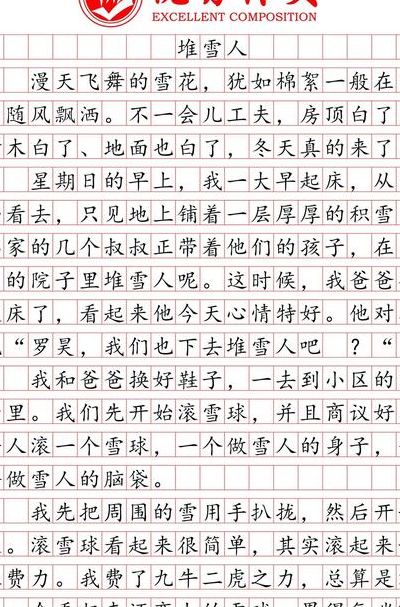 EXCELLENT COMPOSITION
堆雪人
漫天飞舞的雪花，犹如棉絮一般在
随风飘洒。不一会儿工夫，房顶白了
木白了、地面也白了，冬天真的来了
星期日的早上，我一大早起床，从
看去，只见地上铺着一层厚厚的积雪
家的几个叔叔正带着他们的孩子，在
的院子里堆雪人呢。这时候，我爸爸
床了，看起来他今天心情特好。他对
“罗昊，我们也下去堆雪人吧 ？“
我和爸爸换好鞋子，一去到小区的
里。我们先开始滚雪球，并且商议好
人滚一个雪球，一个做雪人的身子，
做雪人的脑袋。
我先把周围的雪用手扒拢，然后开
。滚雪球看起来很简单，其实滚起来
费力。我费了九牛二虎之力，总算是